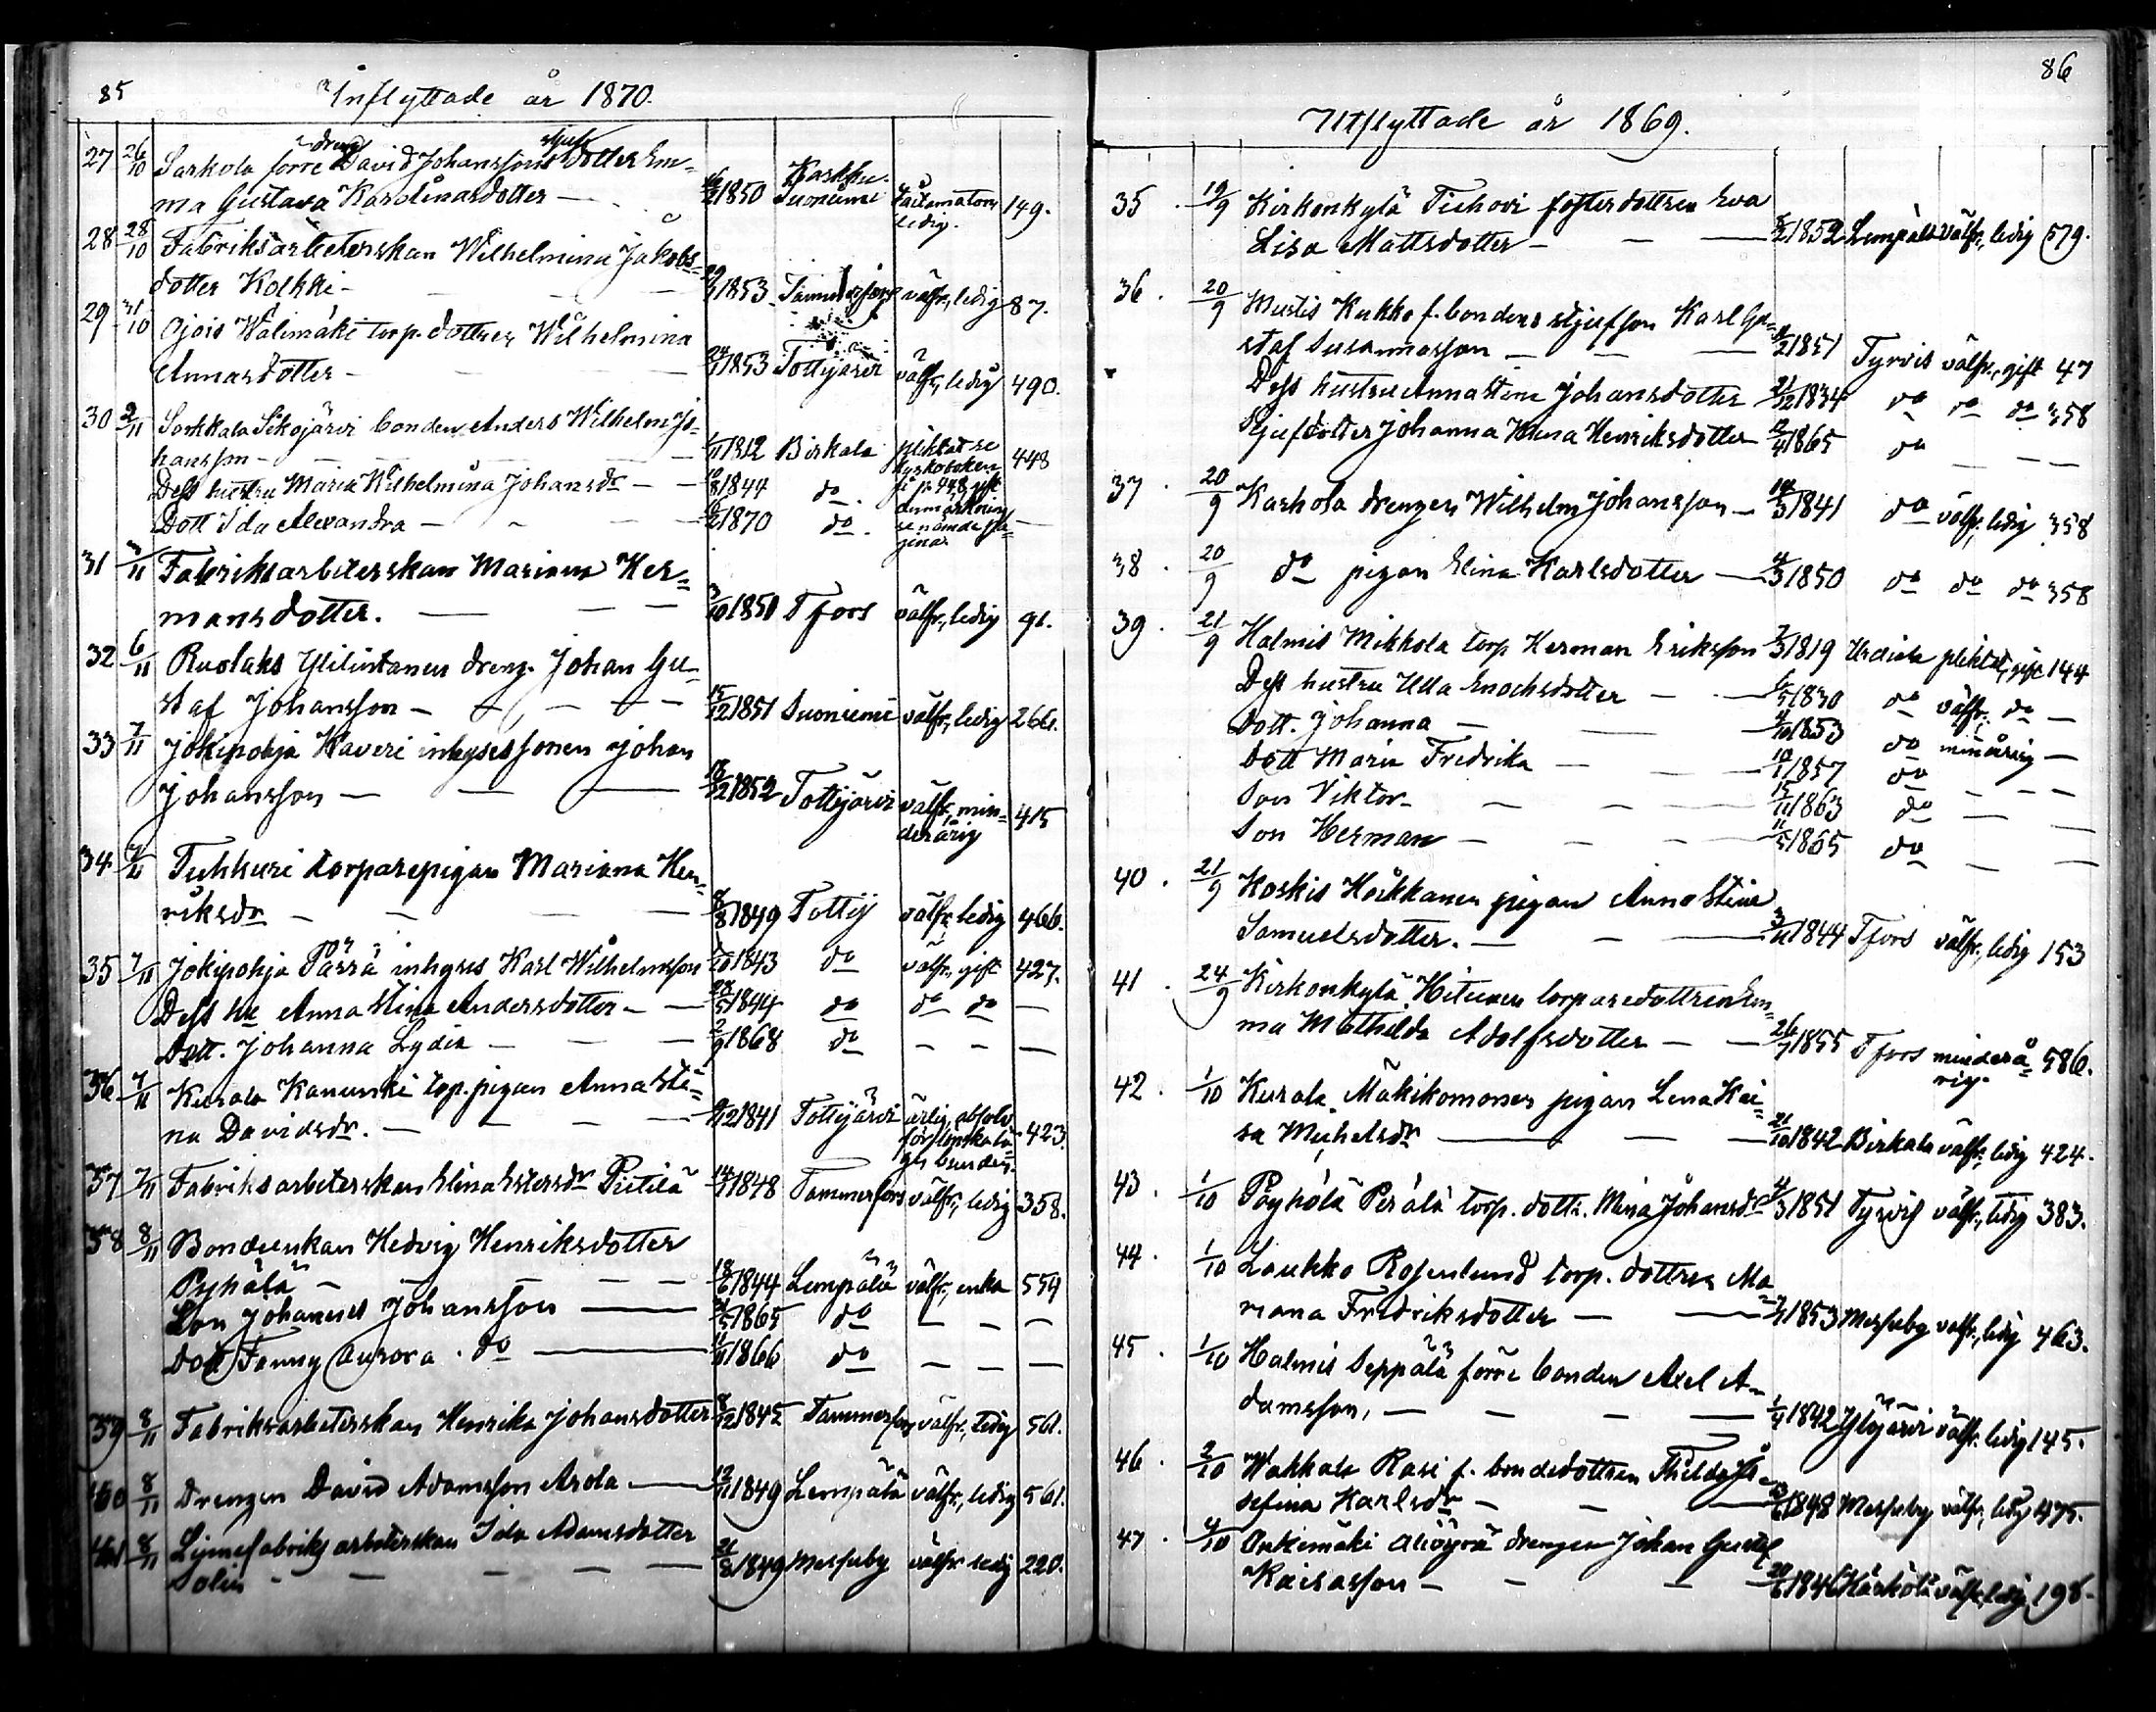 85
Inflyttade år 1870.
27 26/10 Sarkola förre dreng David Johanssons styf dotter Em-
ma Gustava Karolinasdotter — 1850 Karkku. Suoniemi ledig. 149.
28 28/10 Fabriksarbeterskan Wilhelmina Jakobs-
dotter Kolkki — 1853 Tammerfors välfr., ledig 87.
29 31/10 Ojois Wälimäki torp. dottren Wilhelmina
Annasdotter — 1853 Tottijärvi välfr., ledig 490.
30 2/11 Sorkkala Sikojärvi bonden Anders Wilhelm Jo-
hansson — 1/11 1812 Birkala pliktat se kyrkoboken 448
Dess hustru Maria Wilhelmina Johansdr — 1844 do. se p. 448, gift
Dott Ida Alexandra — 1870 do. anmärkning se nämde pa-
gina.
31 3/11 Fabriksarbeterskan Mariana Her-
mansdotter. — 3/10 1850 Tfors välfr., ledig 91.
32 6/11 Ruolaks Ylilintanen dreng. Johan Gu-
staf Johansson — 15/12 1851 Suoniemi välfr., ledig 266.
33 7/11 Jokipohja Kaveri inhysessonen Johan
Johansson — 18/12 1852 Tottijärvi välfr., min-
derårig 415
34 7/11 Tuhkuri torparepigan Mariana Hen-
riksdr — 8/8 1849 Tottij välfr., ledig 466.
35 7/11 Jokipohja Pärrä inhyses Karl Wilhelmsson 1/10 1843 do välfr., gift 427.
Dess hu Anna Stina Andersdotter — 28/5 1844 do do do —
Dott. Johanna Lydia — 2/9 1868 do — — —
36 7/11 Kurala Kanunki torp. pigan Anna Sti-
na Davidsdr. — 9/12 1841 Tottijärvi ärlig, absolv. för lönskalä- 423.
ges bunden.
37 7/11 Fabriksarbeterskan Elina Estersdr Pietilä 14/7 1848 Tammerfors välfr., ledig 358.
38 8/11 Bondeenkan Hedvig Henriksdotter
Pyhälä — 18/6 1844 Lempälä välfr., enka 559
Son Johannes Johansson — 1865 do — — —
Dott Fanny Aurora do — 1866 do — — —
39 8/11 Fabriksarbeterskan Henrika Johansdotter 8/12 1845 Tammerfors välfr., ledig 561.
40 8/11 Drengen David Adamsson Arola — 12/11 1849 Lempälä välfr., ledig 561.
41 8/11 Linnefabriksarbeterskan Ida Adamsdotter
Solin — 21/8 1849 Messuby välfr. ledig 220.
86
Utflyttade år 1869.
35. 19/9 Kirkonkylä Tiehovi fosterdottren Eva
Lisa Mattsdotter — 1852 Lempälä välfr., ledig 579.
36. 20/9 Mustis Kukko f. bondens styfson Karl Gu-
staf Susannasson — 1851 Tyrvis välfr., gift 47
Dess hustru Anna Stina Johansdotter 21/12 1834 do do do 358
Styfdotter Johanna Elina Henriksdotter 1865 do — — —
37. 20/9 Karhola drengen Wilhelm Johansson — 10/3 1841 do välfr., ledig 358
38. 20/9 do pigan Elina Karlsdotter — 4/3 1850 do do do 358
39. 21/9 Halmis Mikkola torp Herman Eriksson 7/3 1819 Urdiala pliktat, gift 144
Dess hustru Ulla Enochsdotter — 6/5 1830 do välfr. do —
Dott. Johanna — 1853 do minårig —
Dott Maria Fredrika — 1857 do
Son Viktor — 15/11 1863 do — — —
Son Herman — 11/5 1865 do — —
40. 21/9 Koskis Hoikkanen pigan Anna Stina
Samuelsdotter. — 3/11 1844 Tfors välfr., ledig 153
41. 24/9 Kirkonkylä Hitunen torparedottren Em-
ma Mathilda Adolfsdotter — 26/7 1855 Tfors minderå- 586.
rig.
42. 1/10 Kurala Mäkikomonen pigan Lena Kai-
sa Michelsdr — 21/10 1842 Birkala välfr., ledig 424.
43. 1/10 Pöyhölä Perälä torp. dottr. Mina Johansdr 4/3 1851 Tyrvis välfr., ledig 383.
44. 1/10 Laukko Rosenlund torp. dottren Ma-
riana Fredriksdotter — 1853 Messuby välfr., ledig 463.
45. 1/10 Halmis Seppälä förre bonden Axel A-
damsson, — 1/4 1842 Ylöjärvi välfr. ledig 145.
46. 2/10 Wakkala Rasi f. bondedottren Thilda Jo-
sefina Karlsdr — 1848 Messuby välfr., ledig 475.
47. 4/10 Onkemäki Aliöyrä drengen Johan Gustaf
Kaisasson — 1846 Kärkölä välfr., ledig 198.